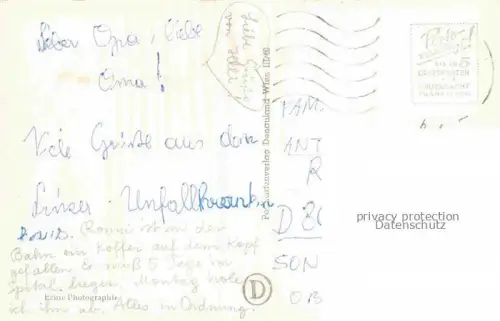 Lieber Opa, liebe
Oma!
Viele Grüße aus dem
Linzer Unfallkranken
Ronni ist in der
Bahn ein Koffer auf dem Kopf
gefallen. Er muß 5 Tage im
Spital liegen. Montag hole
ich ihn ab. Alles in Ordnung.
Echte Photographie
D
Liebe Grüße
von
Postkartenverlag Donauland Wien III/40
FAM.
ANT
R
D 80
SON
OB
privacy protection
Datenschutz